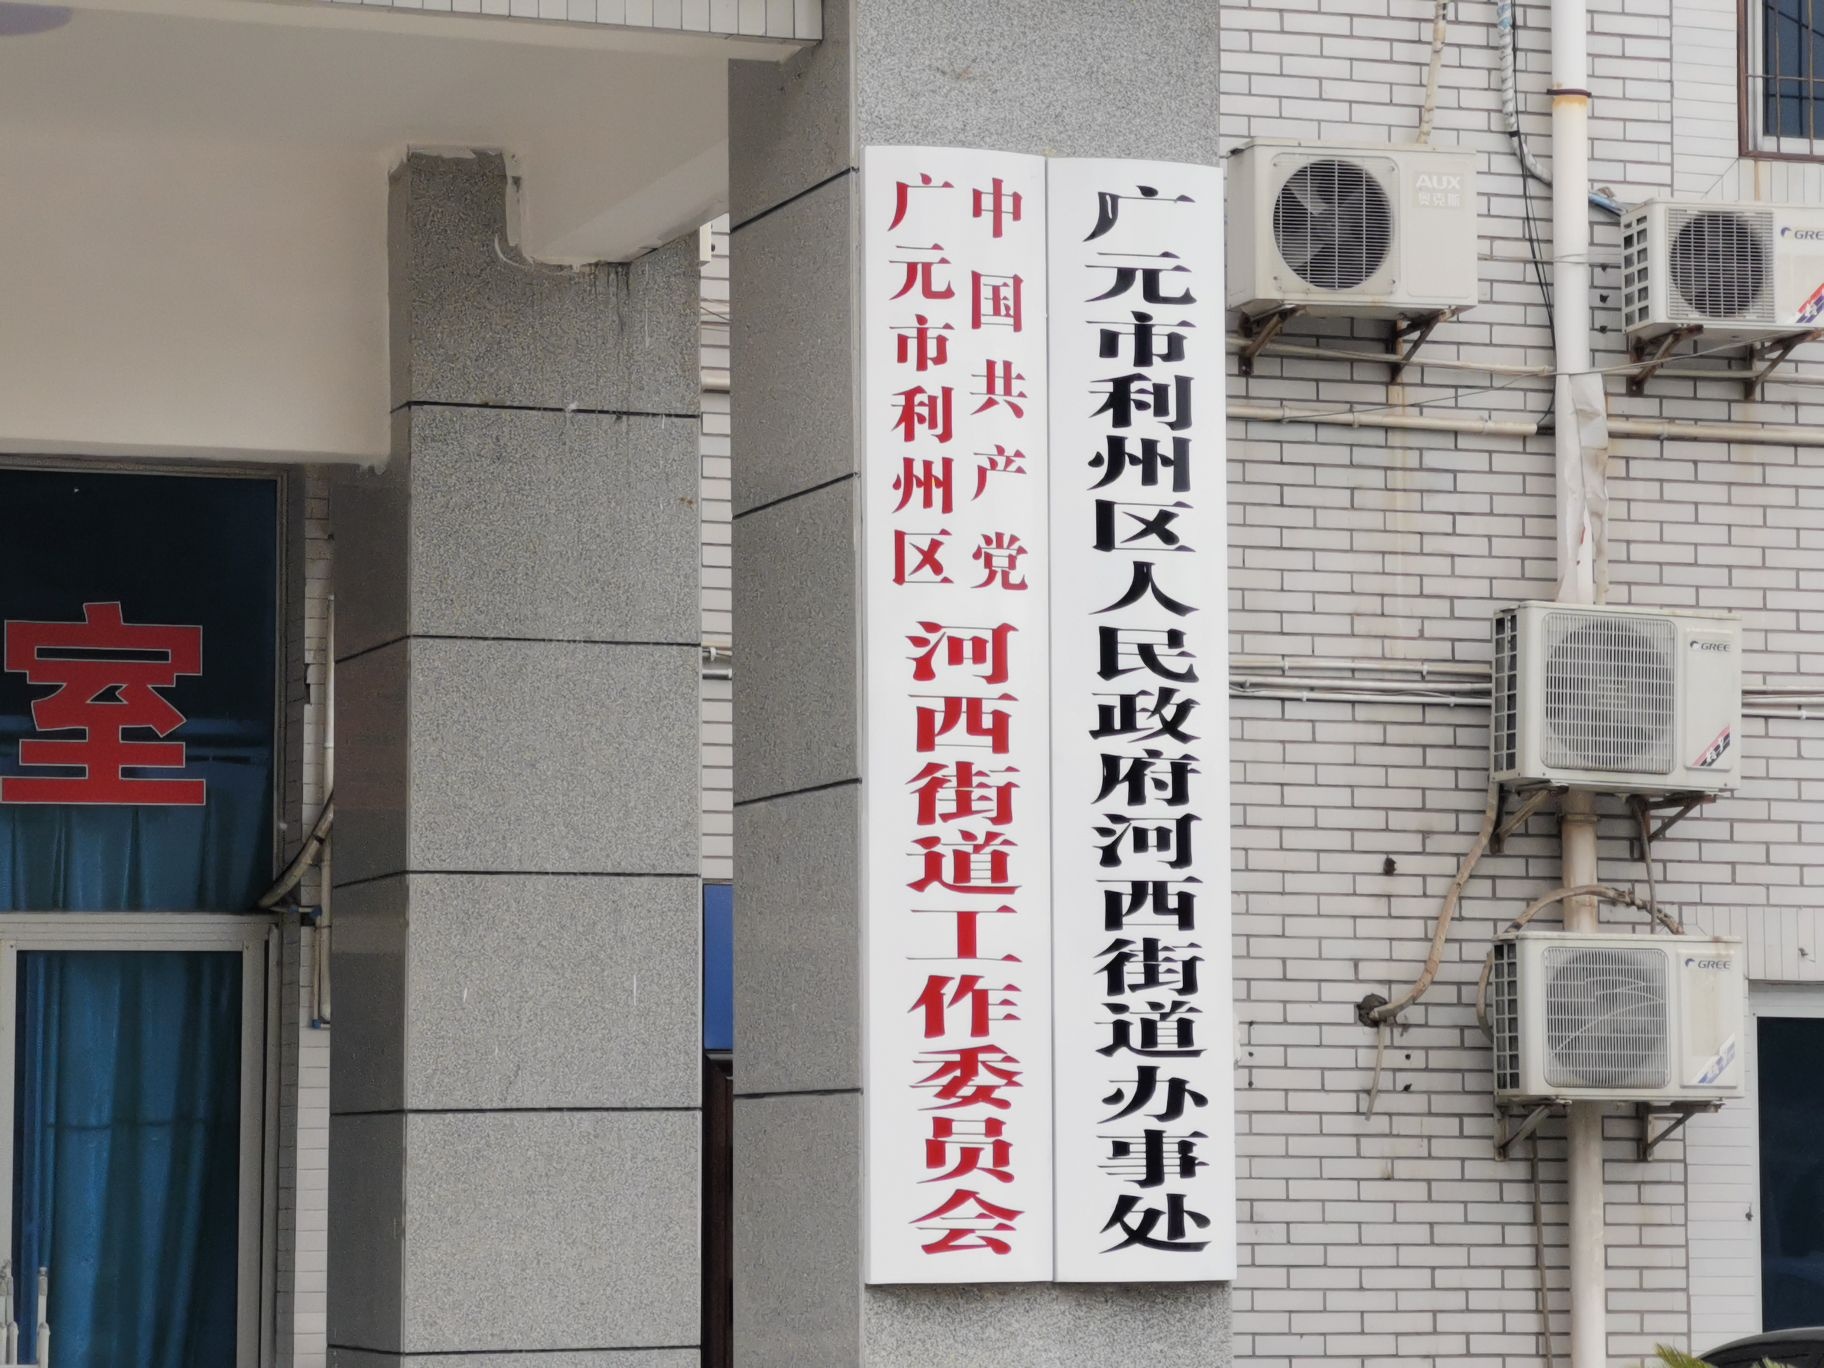 中国共产党
广元市利州区
河西街道工作委员会
广元市利州区人民政府河西街道办事处
室
AUX
奥克斯
GREE
GREE
GREE